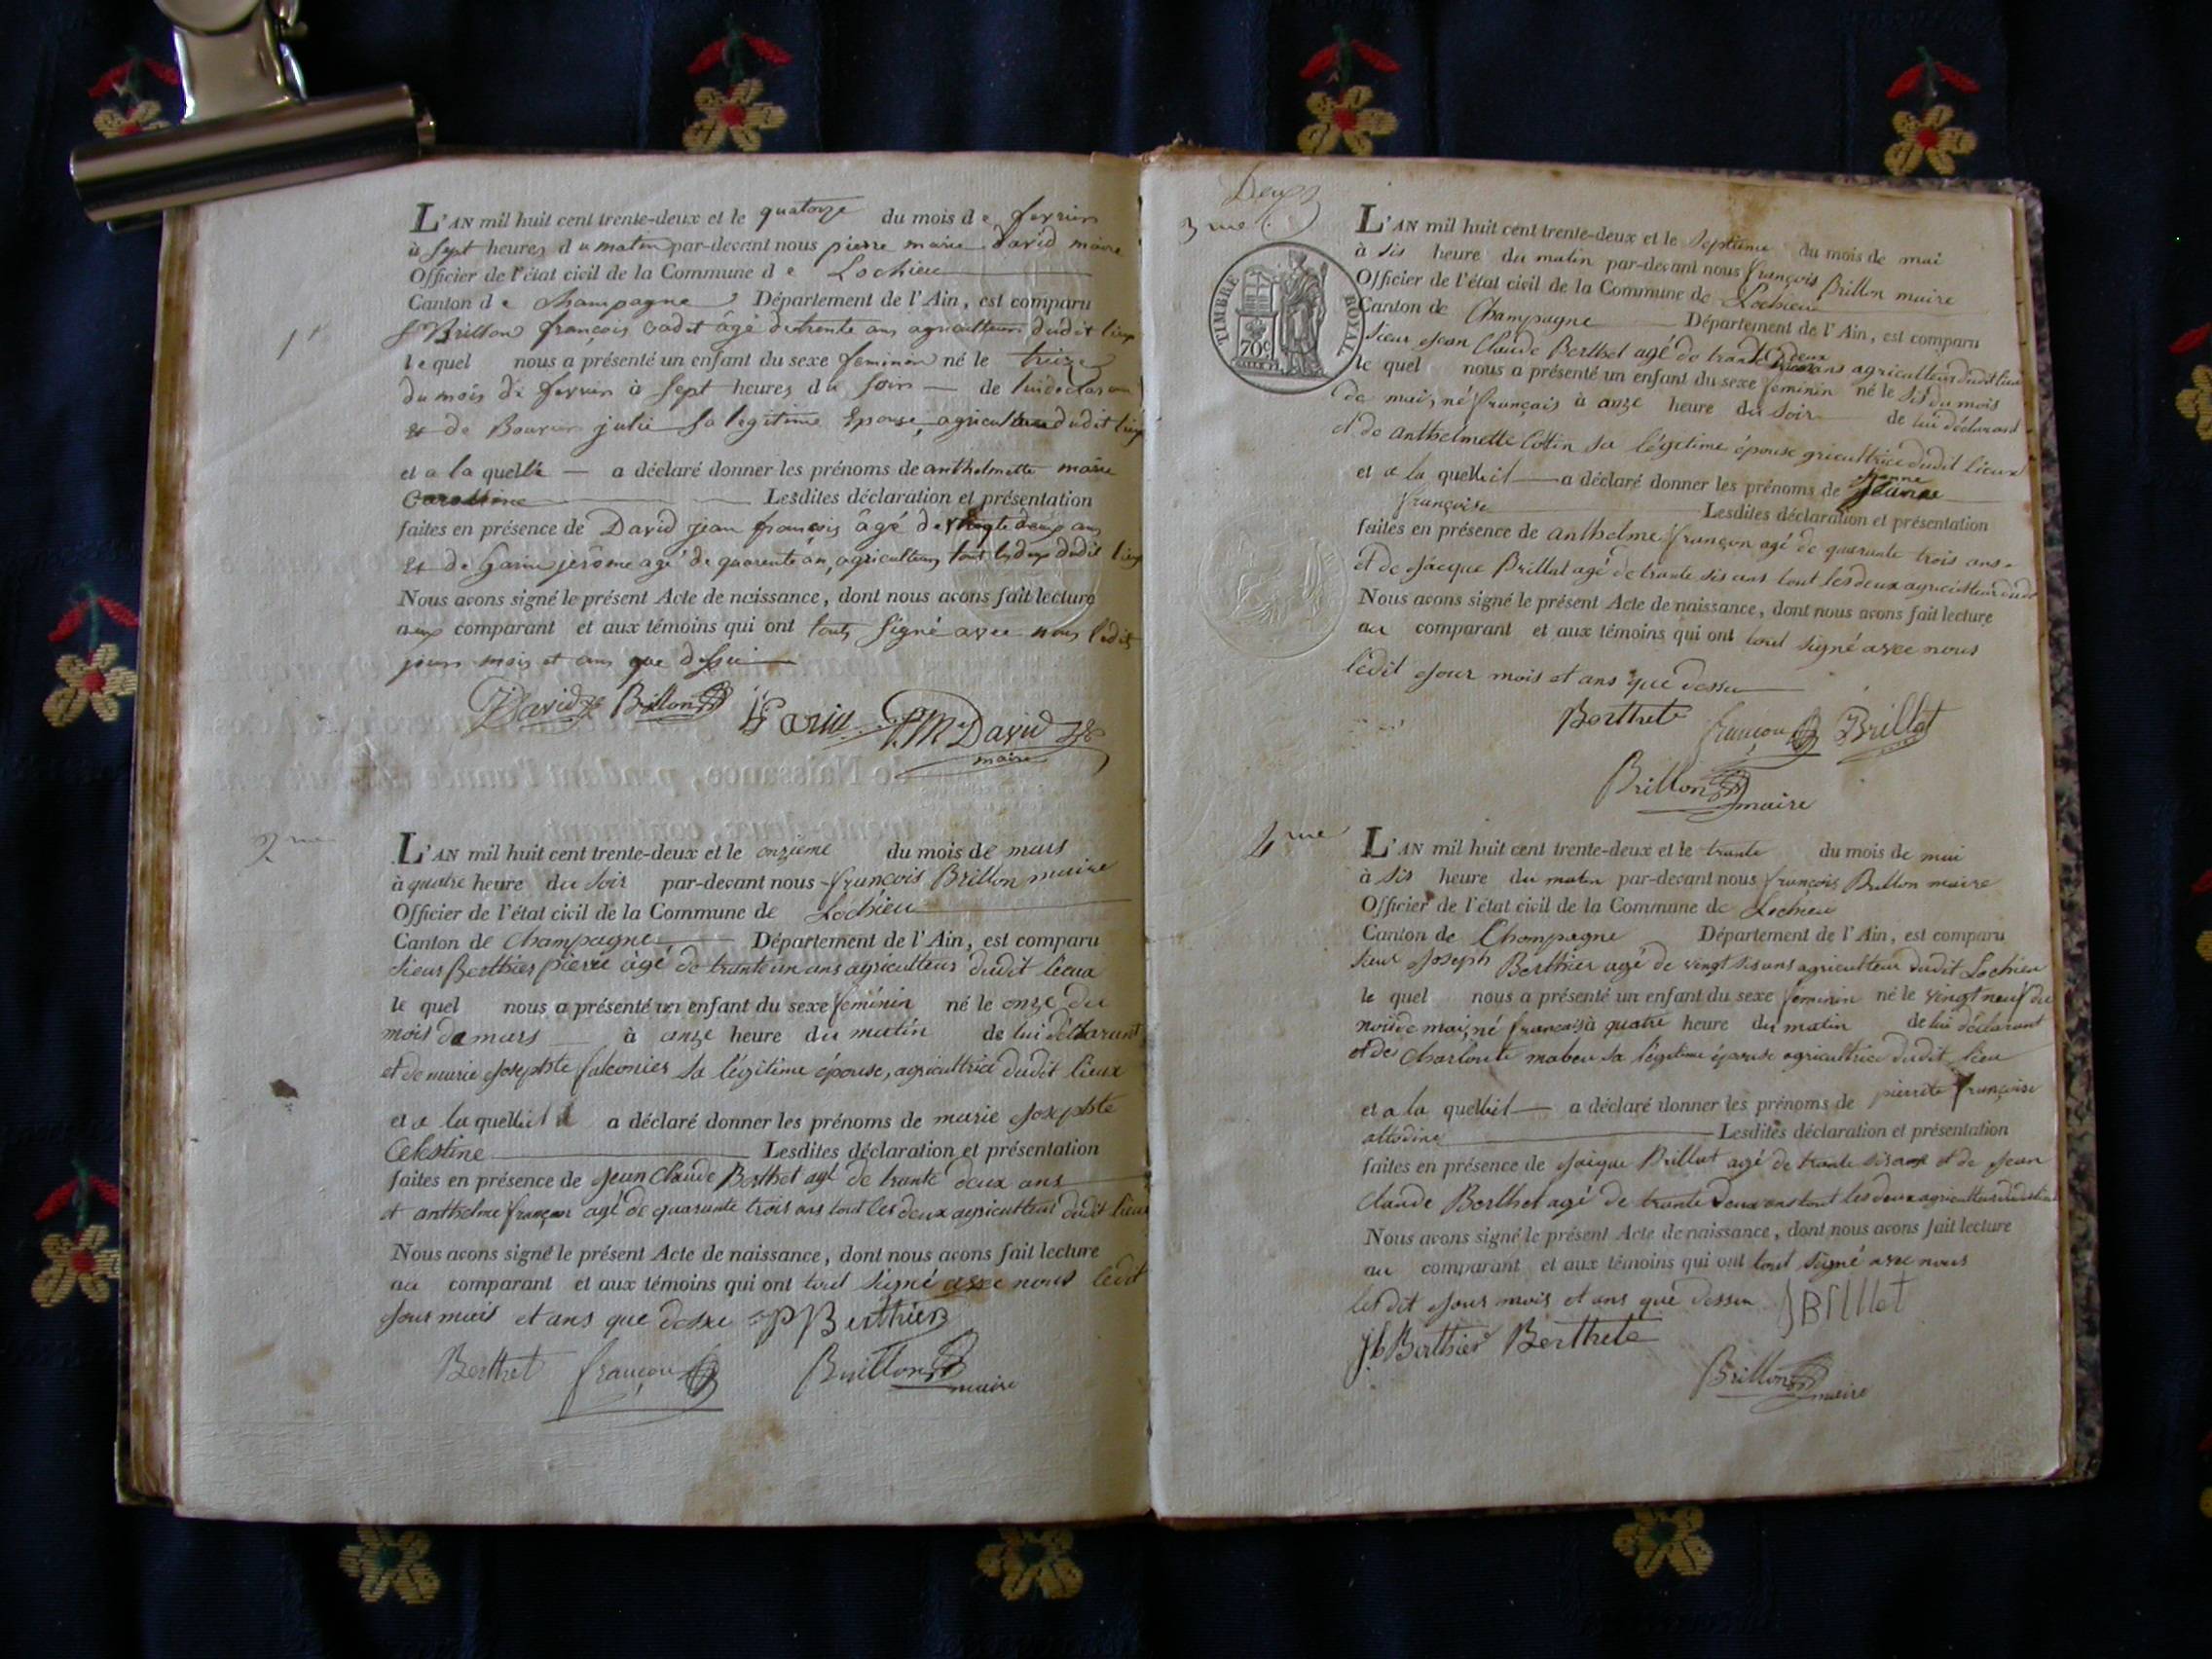 1er
L'AN mil huit cent trente-deux et le quatorze du mois de fevrier
à sept heures du matin par-devant nous pierre marie david maire
Officier de l'état civil de la Commune de Lochieu
Canton de champagne Département de l'Ain, est comparu
Sr Brillon françois cadet âgé de trente ans agriculteur dudit lieu
lequel nous a présenté un enfant du sexe feminin né le treize
du mois de fevrier à sept heures du soir de lui declarant
et de Bouvier julie sa legitime Epouse, dudit lieu
et a la quelle a déclaré donner les prénoms de anthelmette marie
Caroline Lesdites déclaration et présentation
faites en présence de David jean françois âgé de vingt deux ans
Et de Garin jerôme agé de quarente an, agriculteurs tout les deux dudit lieu
Nous avons signé le présent Acte de naissance, dont nous avons fait lecture
aux comparant et aux témoins qui ont touts signé avec nous ledit
jours mois et ans que dessu
David Brillon Garin P.M David
maire
2me
L'AN mil huit cent trente-deux et le onzieme du mois de mars
à quatre heure du soir par-devant nous françois Brillon maire
Officier de l'état civil de la Commune de Lochieu
Canton de Champagne Département de l'Ain, est comparu
sieur Berthier pierre âgé de trante un ans agriculteur dudit lieux
le quel nous a présenté un enfant du sexe féminin né le onze du
mois de mars à onze heure du matin de lui déclarant
et de marie Josephte falconier sa légitime épouse, agricultrice dudit lieux
et a la quelle il a déclaré donner les prénoms de marie Josephte
Celestine Lesdites déclaration et présentation
faites en présence de Jean Claude Berthet agé de trante deux ans
et anthelme françon agé de quarante trois ans tout les deux agriculteur dudit lieux
Nous avons signé le présent Acte de naissance, dont nous avons fait lecture
au comparant et aux témoins qui ont tout signé avec nous ledit
Jour mois et ans que dessu P Berthier
Berthet françon Brillon
maire
Deux
3me
TIMBRE ROYAL
70c
L'AN mil huit cent trente-deux et le septieme du mois de mai
à sis heure du matin par-devant nous françois Brillon maire
Officier de l'état civil de la Commune de Lochieu
Canton de Champagne Département de l'Ain, est comparu
sieur Jean Claude Berthet agé de trante deux ans agriculteur dudit lieu
le quel nous a présenté un enfant du sexe feminin né le sis du mois
de mai, né français à onze heure du soir de lui déclarant
et de anthelmette Cottin sa légitime épouse gricultrice dudit lieux
et a la quelle il a déclaré donner les prénoms de Jeanne
françoise Lesdites déclaration et présentation
faites en présence de anthelme françon agé de quarante trois ans
et de Jacque Brillat agé de trante sis ans tout les deux agriculteur dudit
Nous avons signé le présent Acte de naissance, dont nous avons fait lecture
au comparant et aux témoins qui ont tout signé avec nous
ledit Jour mois et ans que dessu
Berthet françon Brillat
Brillon
maire
4me
L'AN mil huit cent trente-deux et le trante du mois de mai
à sis heure du matin par-devant nous françois Brillon maire
Officier de l'état civil de la Commune de Lochieu
Canton de Champagne Département de l'Ain, est comparu
sieur Joseph Berthier agé de vingt sis ans agriculteur dudit Lochieu
le quel nous a présenté un enfant du sexe feminin né le vingt neuf du
mois de mai, né français à quatre heure du matin de lui déclarant
et de Charloute mabeu sa légitime épouse agricultrice dudit lieu
et a la quelle il a déclaré donner les prénoms de pierrete françoise
Lesdites déclaration et présentation
faites en présence de Jacque Brillat agé de trante sis ans et de Jean
Claude Berthet agé de trante deux ans tout les deux agriculteur
Nous avons signé le présent Acte de naissance, dont nous avons fait lecture
au comparant et aux témoins qui ont tout signé avec nous
ledit Jour mois et ans que dessu J Brillat
Berthier Berthet
Brillon
maire